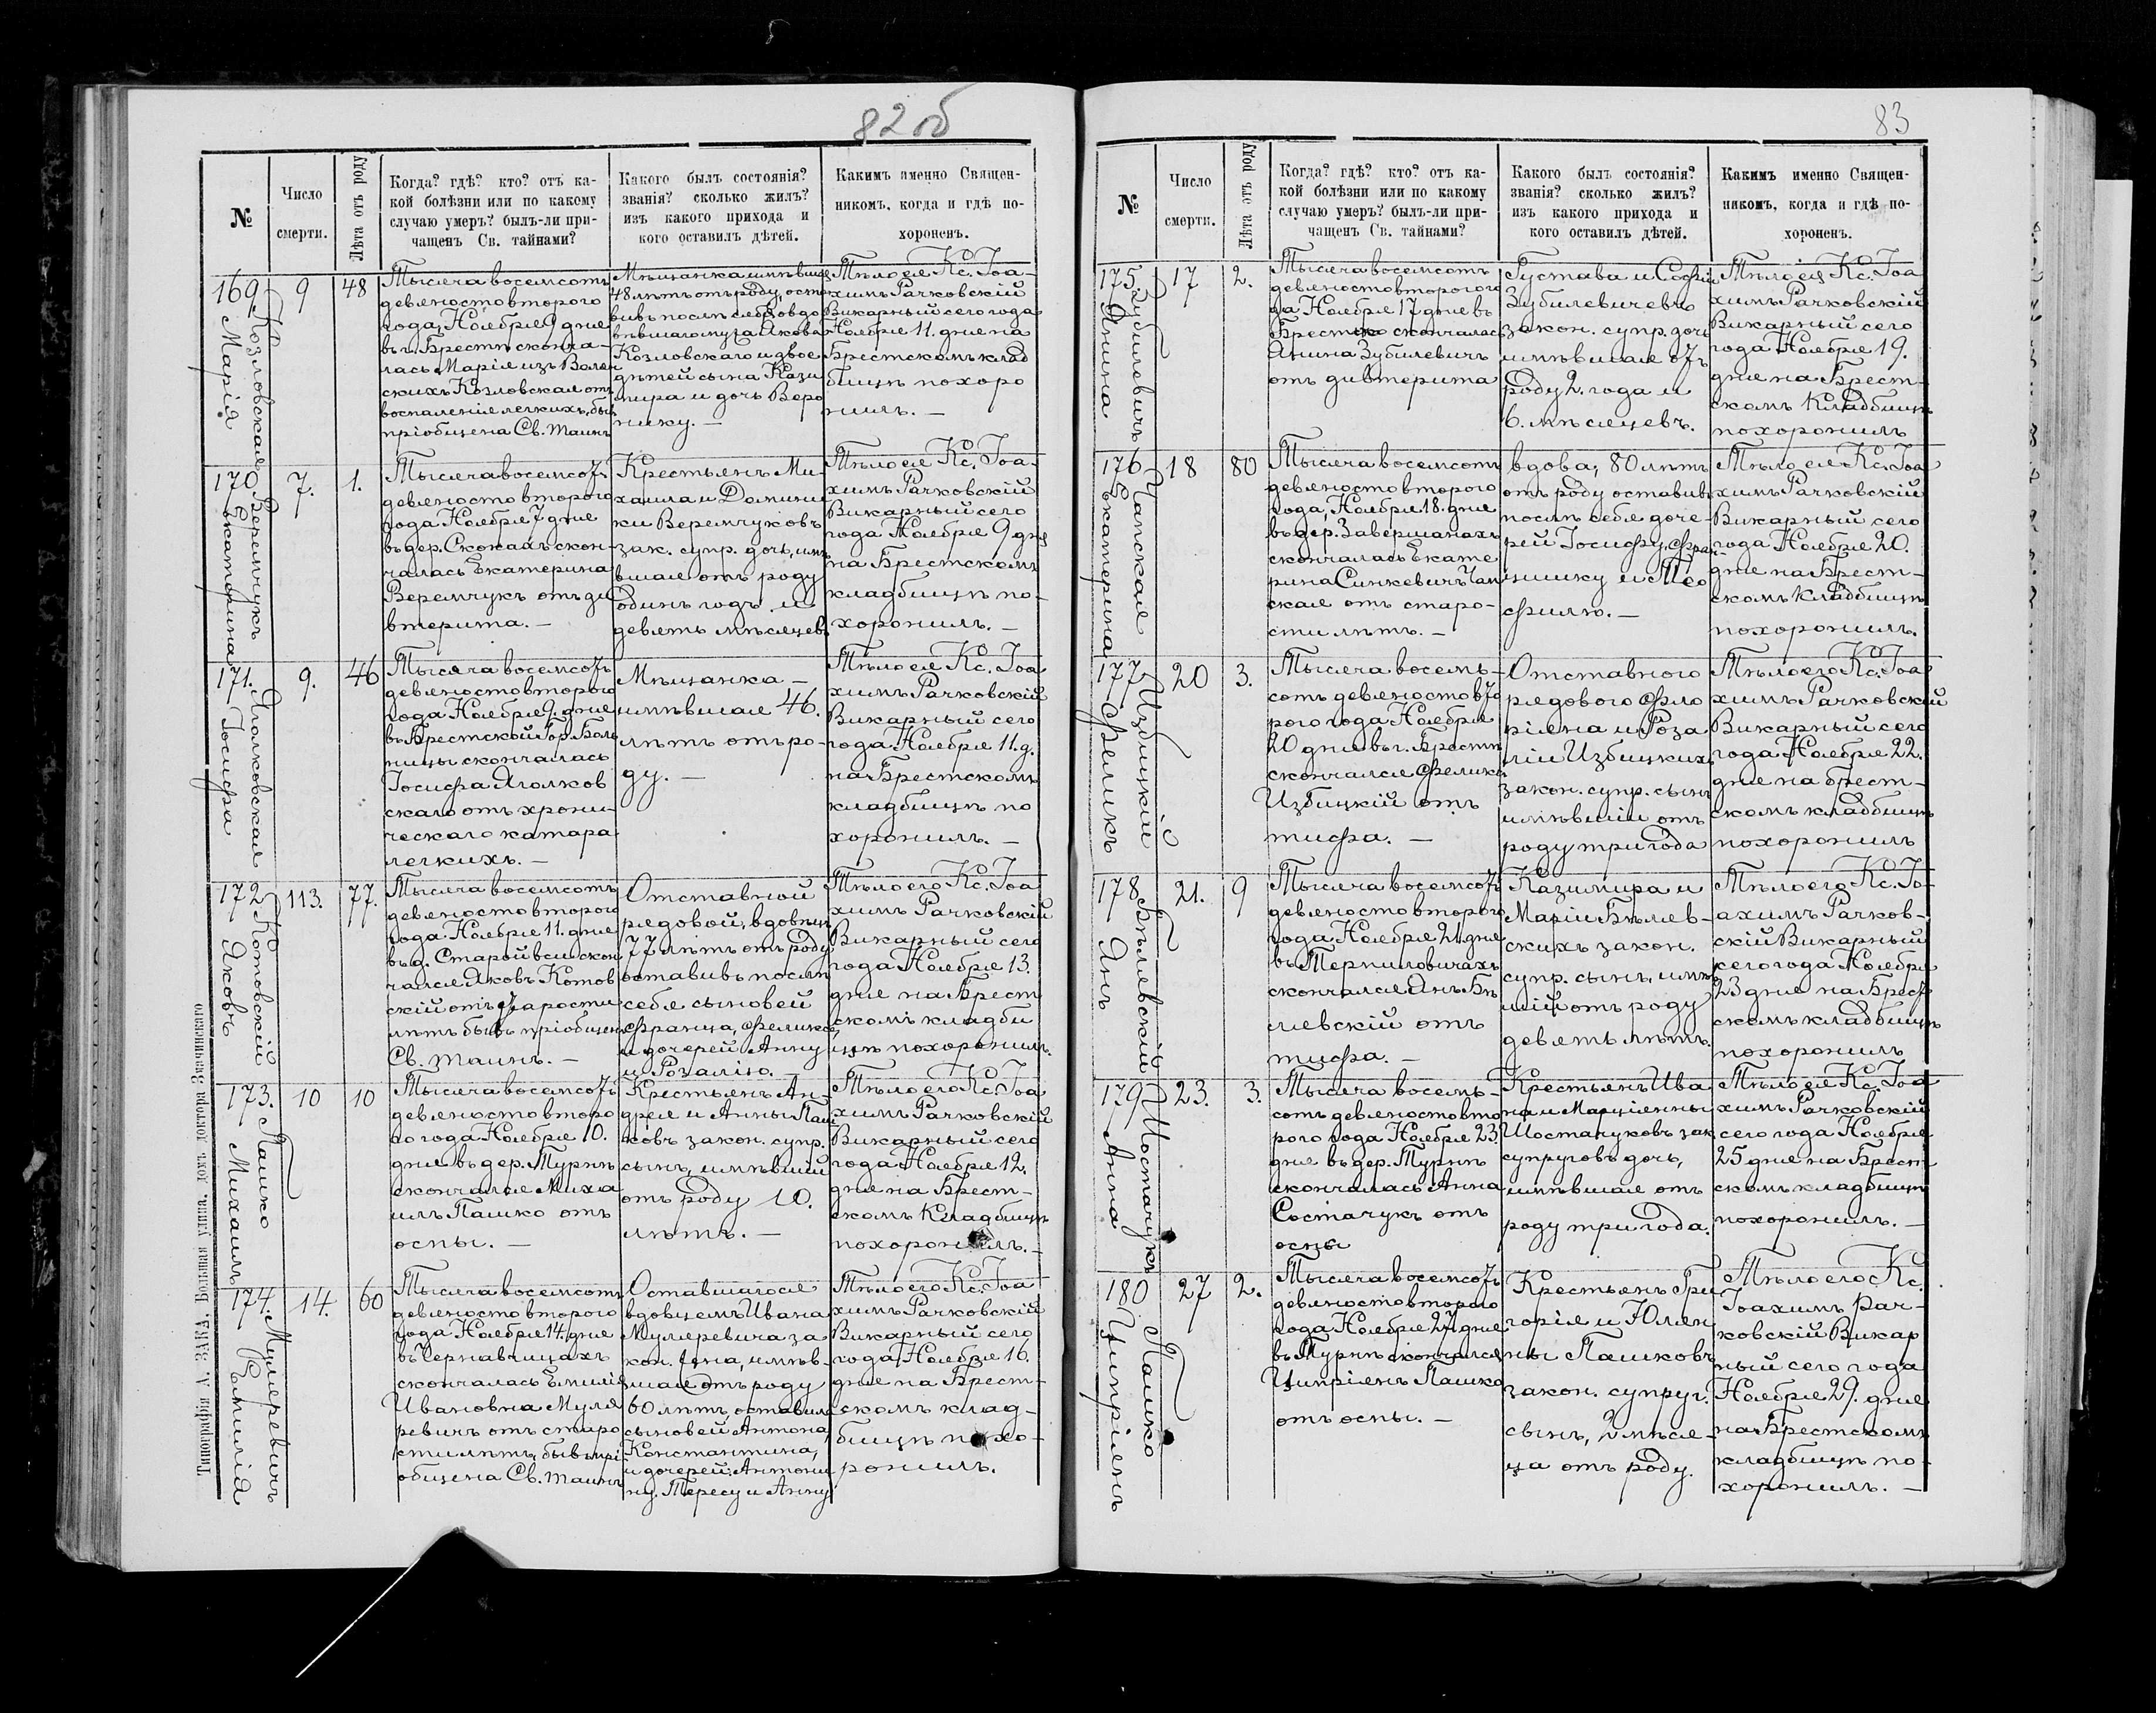 82 об
№
Число
смерти.
Лѣта отъ роду
Когда? гдѣ? кто? отъ ка-
кой болѣзни или по какому
случаю умеръ? былъ-ли при-
чащенъ Св. тайнами?
Какого былъ состоянія?
званія? сколько жилъ?
изъ какого прихода и
кого оставилъ дѣтей.
Какимъ именно Священ-
никомъ, когда и гдѣ по-
хороненъ.
169
Козловская
Марія
9
48
Тысяча восемсотъ
девяносто второго
года, Ноября 9 дня
въ г. Брестѣ сконча-
лась Марія изъ
скихъ Козловская отъ
воспаленія легкихъ, бывъ
пріобщена Св. Таинъ
Мѣщанка имѣвшая
48 лѣтъ отъ роду, оста
вивъ послѣ себя овдо
вѣвшаго мужа Якова
Козловскаго и двое
дѣтей сына Кази
мира и дочь Веро
нику. —
Тѣло ея Кс. Іоа-
химъ Рачковскій
Викарный сего года
Ноября 11. дня на
Брестскомъ клад
бищѣ похоро
нилъ. —
170
Веремчукъ
Екатерина
7.
1.
Тысяча восемсотъ
девяносто второго
года Ноября 7 дня
въ дер. Скокахъ скон-
чалась Екатерина
Веремчукъ отъ ди
втерита. —
Крестьянъ Ми-
хаила и Домини
ки Веремчуковъ
зак. супр. дочь, имѣ
вшая отъ роду
одинъ годъ и
девять мѣсяцевъ
Тѣло ея Кс. Іоа-
химъ Рачковскій
Викарный сего
года Ноября 9 дня
на Брестскомъ
кладбищѣ по-
хоронилъ. —
171.
Яголковская
Іосифа
9.
46
Тысяча восемсотъ
девяносто второго
года Ноября 9. дня
въ Брестской Гор. Боль
ницы скончалась
Іосифа Яголков
скаго отъ хрони-
ческаго катара
легкихъ. —
Мѣщанка —
имѣвшая 46.
лѣтъ отъ ро-
ду. —
Тѣло ея Кс. Іоа
химъ Рачковскій
Викарный сего
года Ноября 11. д.
на Брестскомъ
кладбищѣ по
хоронилъ. —
172
Котовскій
Яковъ
113.
77.
Тысяча восемсотъ
девяносто второго
года Ноября 11. дня
въ д. Старой вси скон
чался Яковъ Котов
скій отъ старости
лѣтъ бывъ пріобщенъ
Св. таинъ. —
Отставной
рядовой, вдовецъ
77 лѣтъ отъ роду
оставивъ послѣ
себя сыновей
Франца, Феликса,
и дочерей Анну
и Розалію. —
Тѣло его Кс. Іоа
химъ Рачковскій
Викарный сего
года Ноября 13.
дня на Брест
скомъ кладби
щѣ похоронилъ.
173.
Пашко
Михаилъ
10
10
Тысяча восемсотъ
девяносто второ
го года Ноября 10.
дня въ дер. Турнѣ
скончался Миха
илъ Пашко отъ
оспы. —
Крестьянъ Ан-
дрея и Анны Паш
ковъ закон. супр.
сынъ, имѣвшій
отъ роду 10.
лѣтъ. —
Тѣло его Кс. Іоа
химъ Рачковскій
Викарный сего
года Ноября 12.
дня на Брест-
скомъ Кладбищѣ
похоронилъ. —
174.
Мулеревичъ
Емилія
14.
60
Тысяча восемсотъ
девяносто второго
года Ноября 14. дня
въ Чернавчицахъ
скончалась Емилія
Ивановна Муле
ревичъ отъ старо
сти лѣтъ, бывъ прі-
общена Св. таинъ
Оставшагося
вдовцемъ Ивана
Мулеревича за
кон. жена, имѣв-
шая отъ роду
60 лѣтъ, оставила
сыновей Антона,
Константина,
и дочерей: Антони
ну, Тересу и Анну
Тѣло его Кс. Іоа
химъ Рачковскій
Викарный сего
года Ноября 16.
дня на Брест-
скомъ клад-
бищѣ похо-
ронилъ.
Типографія А. ЗАКА, Вольная улица, домъ доктора Значинскаго
83
№
Число
смерти.
Лѣта отъ роду
Когда? гдѣ? кто? отъ ка-
кой болѣзни или по какому
случаю умеръ? былъ-ли при-
чащенъ Св. тайнами?
Какого былъ состоянія?
званія? сколько жилъ?
изъ какого прихода и
кого оставилъ дѣтей.
Какимъ именно Священ-
никомъ, когда и гдѣ по-
хороненъ.
175.
Зубилевичъ
Янина
17
2.
Тысяча восемсотъ
девяносто второго го
да Ноября 17 дня въ
скончалась
Янина Зубилевичъ
отъ дивтерита
Густава и Софіи
Зубилевичевъ
закон. супр. дочь
имѣвшая отъ
роду 2. года и
6. мѣсяцевъ.
Тѣло ея Кс. Іоа
химъ Рачковскій
Викарный сего
года Ноября 19.
дня на Брест-
скомъ Кладбищѣ
похоронилъ
176
Чапская
Екатерина
18
80
Тысяча восемсотъ
девяносто второго
года, Ноября 18. дня
въ дер. Завершанахъ
скончалась Екате
рина Синкевичъ Чап
ская отъ старо-
сти лѣтъ. —
вдова, 80 лѣтъ
отъ роду оставивъ
послѣ себя доче-
рей Іосифу, Фран-
цишку и Тео
филю. —
Тѣло ея Кс. Іоа
химъ Рачковскій
Викарный сего
года Ноября 20.
дня на Брест-
скомъ Кладбищѣ
похоронилъ.
177
Избицкій
Феликъ
20
3.
Тысяча восемь-
сотъ девяносто вто
рого года Ноября
20 дня въ г. Брестѣ
скончался Феликъ
Избицкій отъ
тифа. —
Отставного
рядового Фло
ріяна и Роза
ліи Избицкихъ
закон. супр. сынъ
имѣвшій отъ
роду три года
Тѣло его Кс. Іоа
химъ Рачковскій
Викарный сего
года Ноября 22.
дня на Брест-
скомъ кладбищѣ
похоронилъ
178
Бѣлевскій
Янъ
21.
9
Тысяча восемсотъ
девяносто второго
года, Ноября 21. дня
въ Терпиловичахъ
скончался Янъ Бѣ
левскій отъ
тифа. —
Казимира и
Маріи Бѣлев-
скихъ закон.
супр. сынъ, имѣв
шій отъ роду
девять лѣтъ.
Тѣло его Кс. Іо-
ахимъ Рачков-
скій Викарный
сего года Ноября
23 дня на Брест
скомъ кладбищѣ
похоронилъ
179
Шостачукъ
Анна
23.
3.
Тысяча восемь-
сотъ девяносто вто
рого года Ноября 23.
дня въ дер. Турнѣ
скончалась Анна
Состачукъ отъ
оспы
Крестьянъ Ива
на и Марціянны
Шостачуковъ зак
супруговъ дочь,
имѣвшая отъ
роду три года.
Тѣло ея Кс. Іоа
химъ Рачковскій
сего года Ноября
25 дня на Брест
скомъ кладбищѣ
похоронилъ. —
180
Пашко
Ципріянъ
27
2.
Тысяча восемсотъ
девяносто второго
года Ноября 27 дня
въ Турнѣ скончался
Ципріянъ Пашко
отъ оспы. —
Крестьянъ Гри
горія и Юліян
ны Пашковъ
закон. супруг.
сынъ, 2 мѣся-
ца отъ роду.
Тѣло его Кс.
Іоахимъ Рач-
ковскій Викар
ный сего года
Ноября 29. дня
на Брестскомъ
кладбищѣ по-
хоронилъ. —